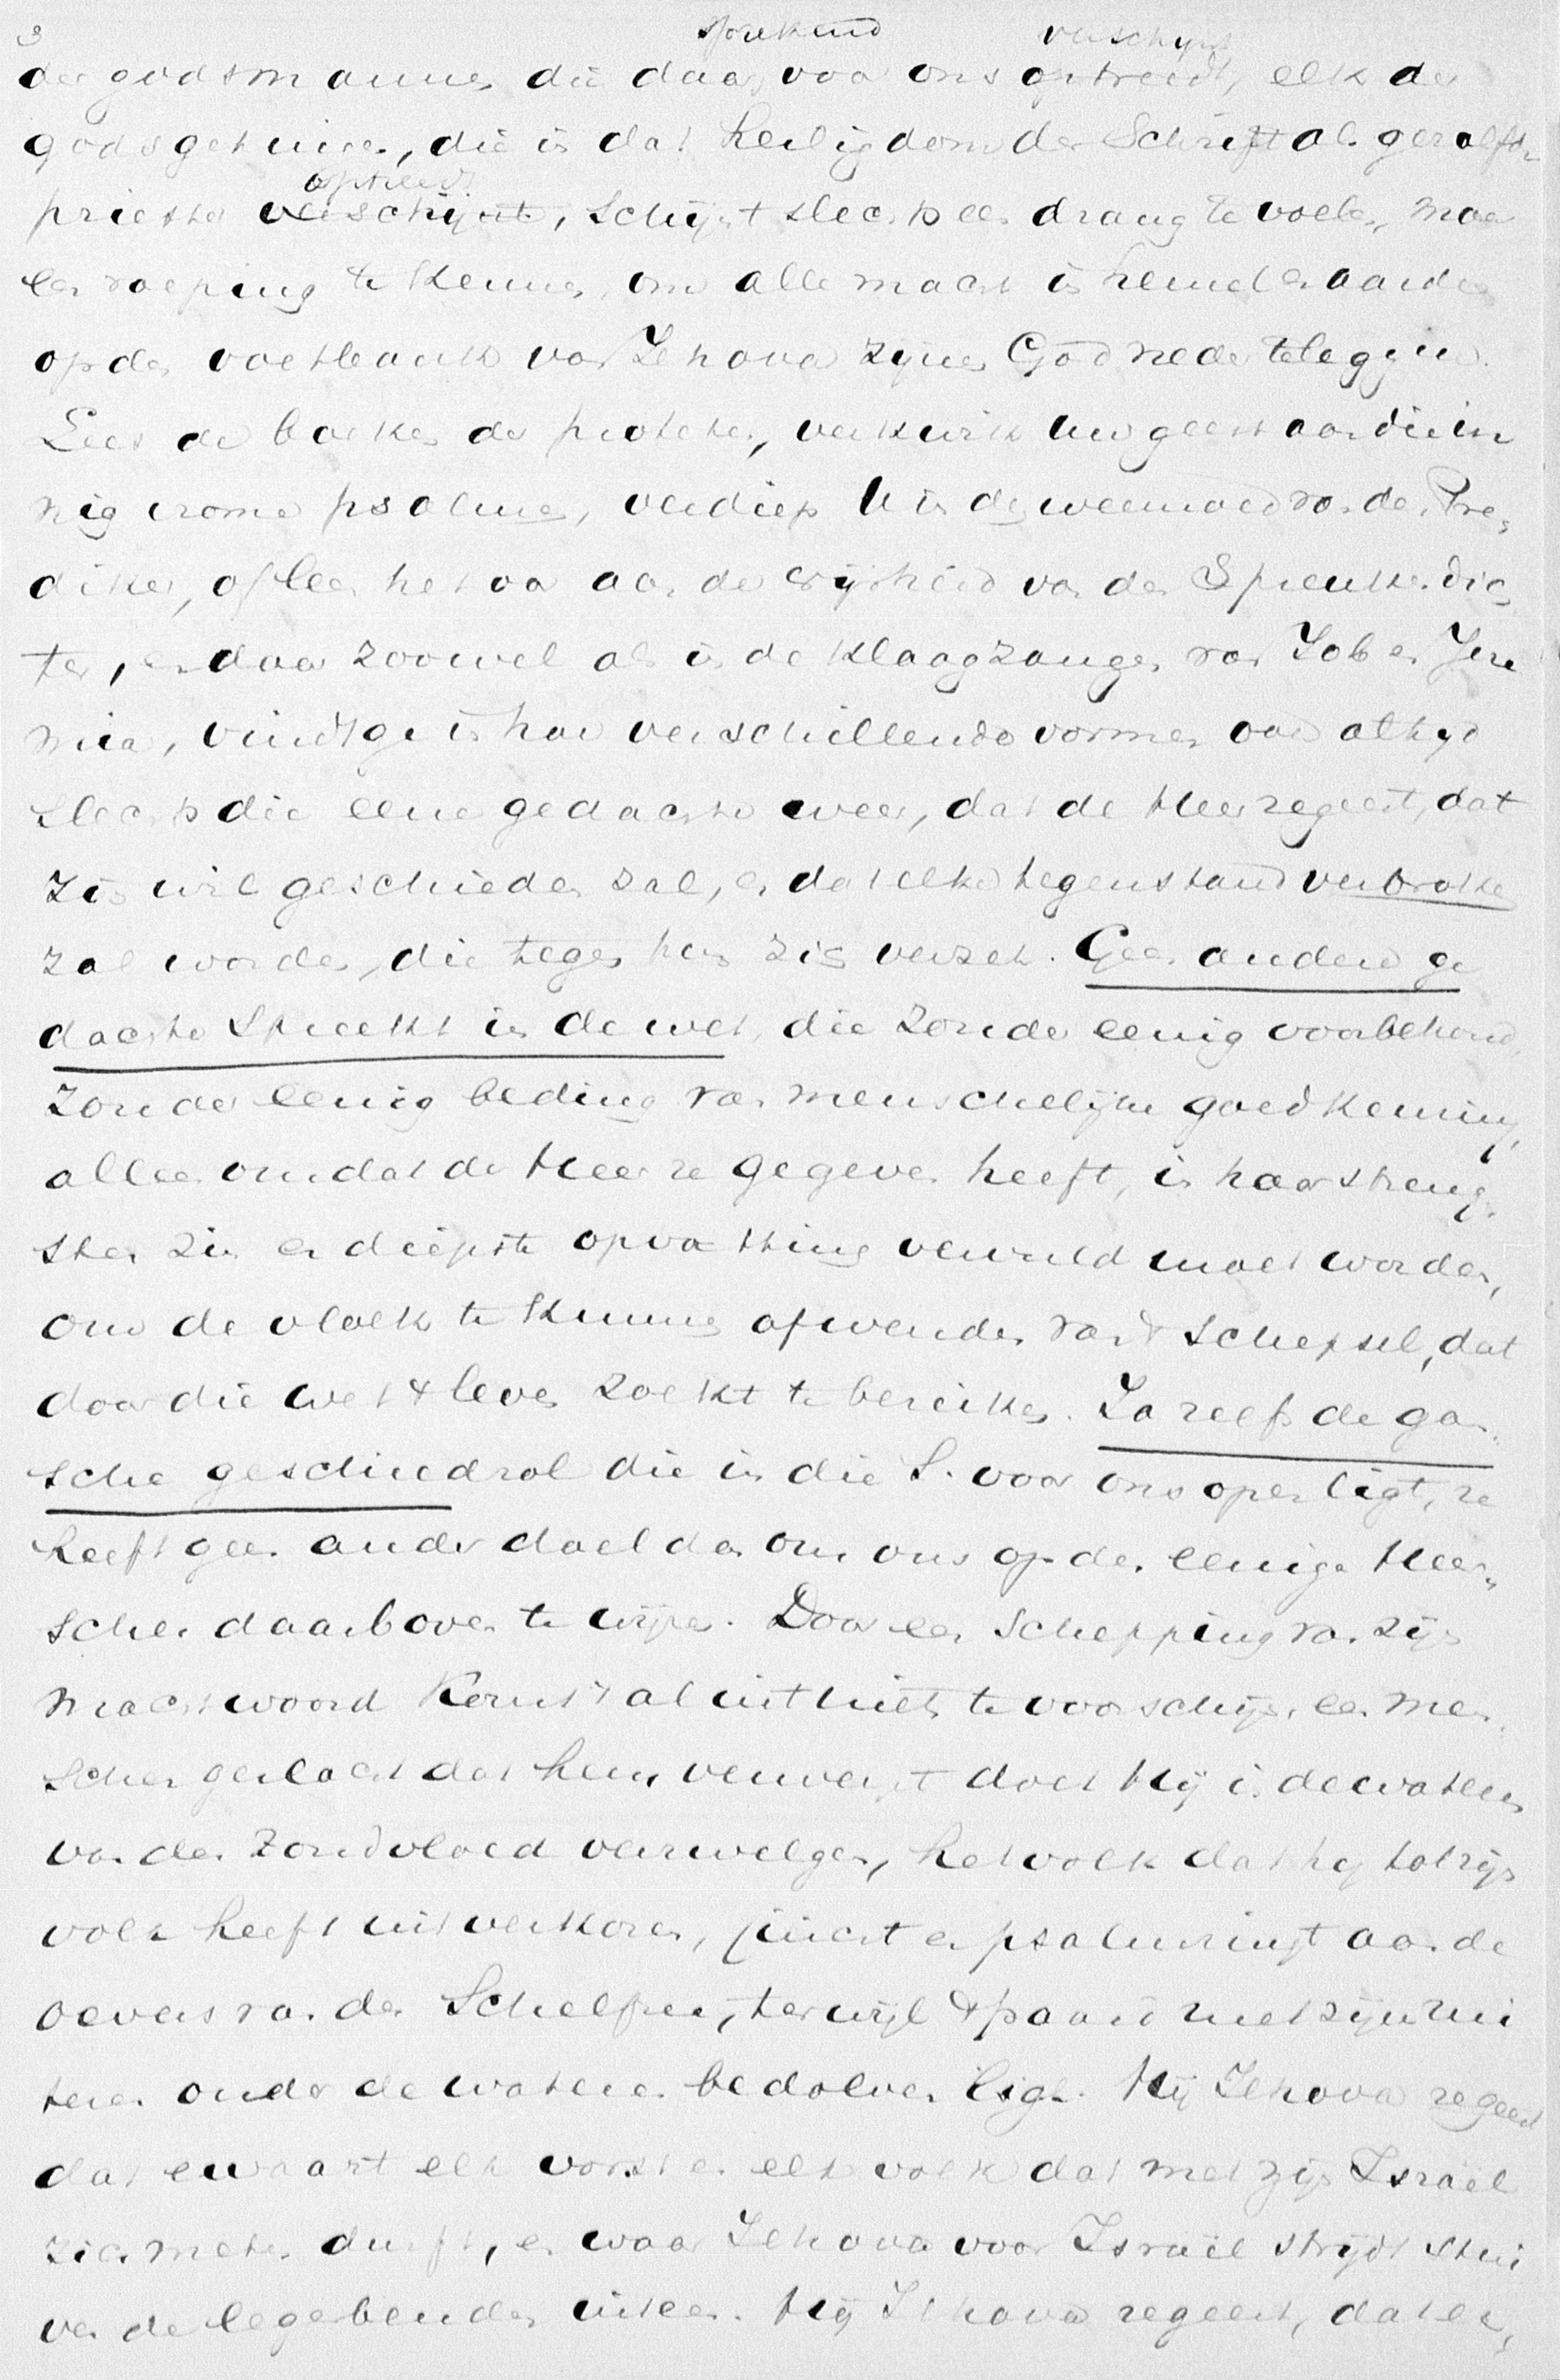 3
sprekend verschijnt
der godsmannen die daar voor ons optreedt, elk der
godsgetuigen, die in dat heiligdom der Schrift als gezalfde
optreedt
priester verschijnt, schijnt slechts een drang te voelen, maar
een roeping te kennen, om alle macht in hemel en aarde
op de voetbank van Jehova zijnen God neder te leggen.
Lees de boeken der profeten, verkwik uw geest aan die in
nig vrome psalmen, verdiep U in de weemoed van den Pre-
diker, of leer het van aan de wijsheid van den Spreukendich
ter, en daar zoowel als in de klaagzangen van Job en Jere
mia, vindt ge in hare verschillende vormen ook altijd
slechts die eene gedachte weer, dat de Heer regeert, dat
zijn wil geschieden zal, en dat elke tegenstand verbroken
zal worden, die tegen hem zich verzet. Geen andere ge
dachte spreekt in de wet, die zonder eenig voorbehoud,
zonder eenig beding van menschelijke goedkeuring,
alleen omdat de Heer ze gegeven heeft, in haar streng-
sten zin en diepste opvatting vervuld moet worden,
om de vloek te kunnen afwenden van 't schepsel, dat
door die wet 't leven zoekt te bereiken. Ja zelfs de gan-
sche geschiedrol die in die S. voor ons open ligt, ze
heeft geen ander doel dan om ons op den eenigen Heer-
scher daarboven te wijzen. Door een schepping van zijn
machtwoord komt 't al uit niets te voorschijn, een men-
schen geslacht dat hem verwerpt doet Hij in de wateren
van den zondvloed verzwelgen, het volk dat hij tot zijn
volk heeft uitverkoren, juicht en psalmzingt aan de
oevers van de Schelfzee, terwijl 't paard met zijn rui
teren onder de wateren bedolven ligt. Hij Jehova regeert
dat ervaart elk vorst en elk volk dat met zijn Israël
zich meten durft, en waar Jehova voor Israël strijdt stui
ven de legerbenden uiteen. Hij Jehova regeert, dat er,